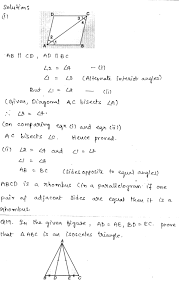 Solutions
(i)
AB || CD, AD || BC
∠2 = ∠4 — (i)
∠1 = ∠3 (Alternate interior angles)
But ∠1 = ∠2 — (ii)
(Given, Diagonal AC bisects ∠A)
∴ ∠3 = ∠4
(on comparing eqn (i) and eqn (ii))
AC bisects ∠C. Hence proved.
(ii) ∠2 = ∠4 and ∠1 = ∠2
∠1 = ∠4
AB = BC (Sides opposite to equal angles)
ABCD is a rhombus (In a parallelogram if one
pair of adjacent sides are equal then it is a
rhombus.
In the given figure, AD = AE, BD = EC. prove
that △ABC is an isosceles triangle.
A
B D E C